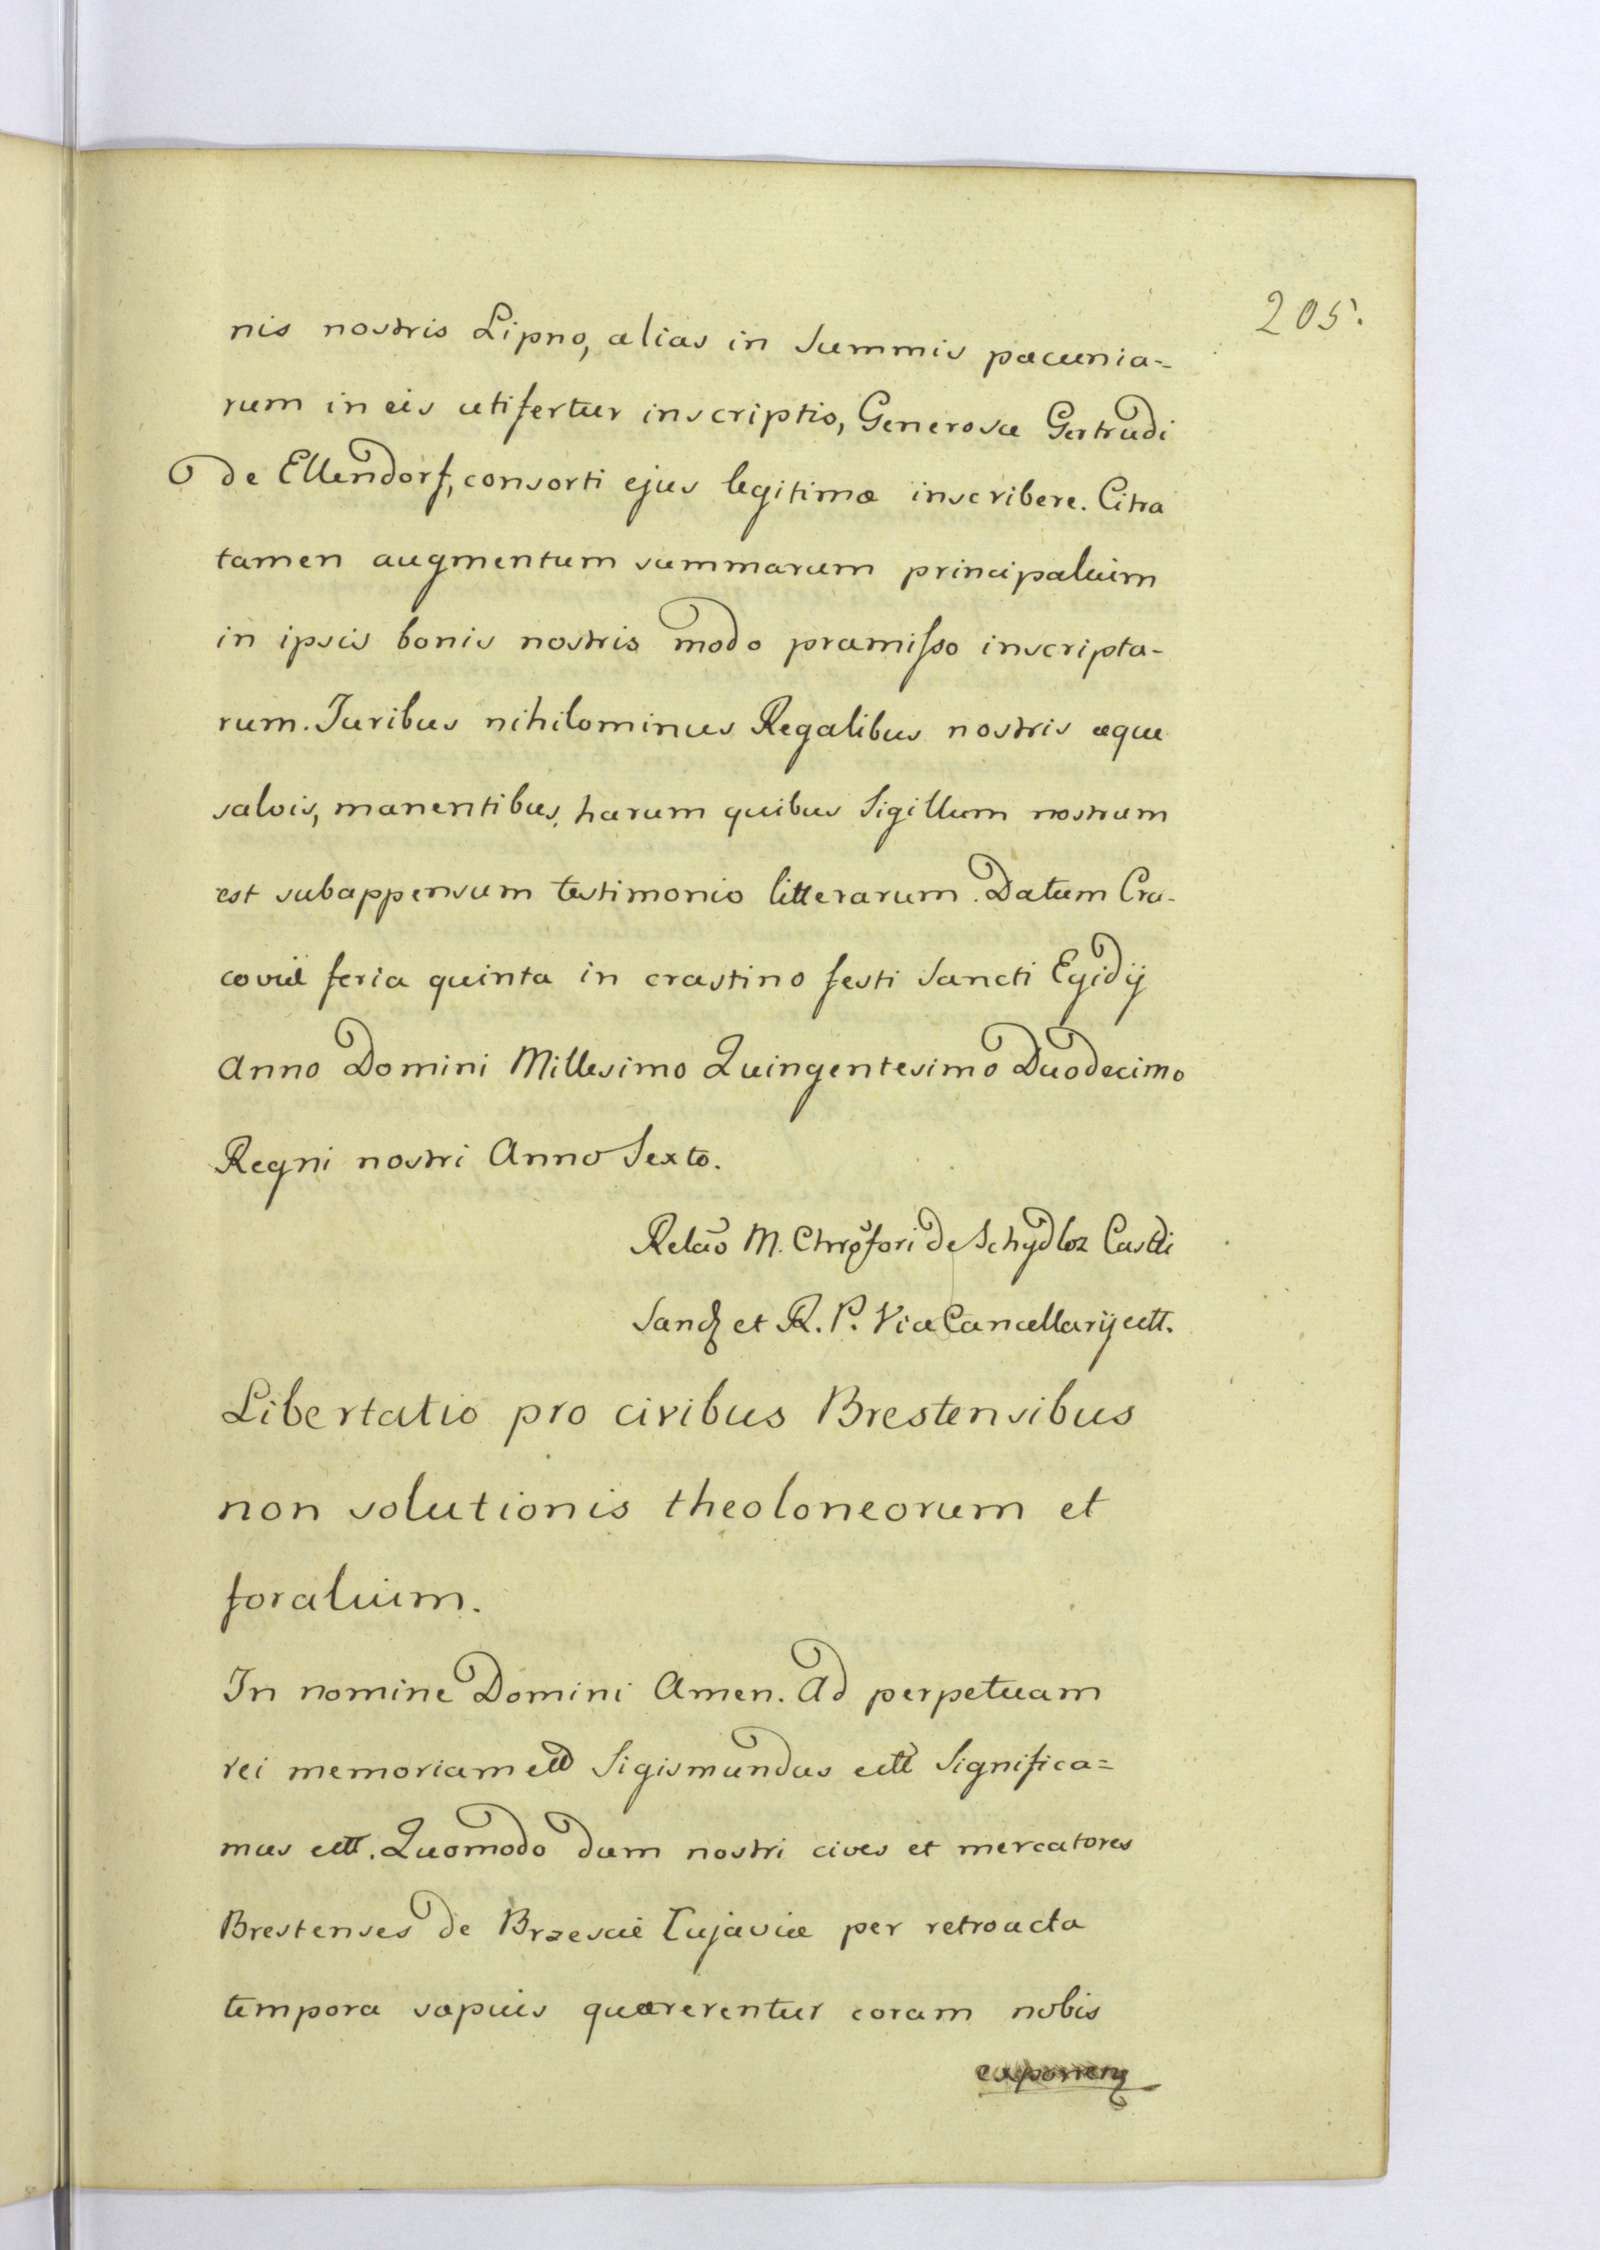 205.
nis nostris Lipno, alias in summis pæcunia-
rum in eis utifertur inscriptis, Generosæ Gertrudi
de Ellendorf, consorti ejus legitimæ inscribere. Citra
tamen augmentum summarum principalium
in ipsis bonis nostris modo præmisso inscripta-
rum. Juribus nihilominus Regalibus nostris æque
salvis, manentibus, harum quibus Sigillum nostrum
est subappensum testimonio litterarum. Datum Cra-
coviæ feria quinta in crastino festi Sancti Egidij
Anno Domini Millesimo Quingentesimo Duodecimo
Regni nostri Anno Sexto.
Relão M. Chrõfori de Schydloz Castli
Sand et R. P. ViceCancellarij ett.
Libertatio pro civibus Brestensibus
non solutionis theoloneorum et
foralium.
In nomine Domini Amen. Ad perpetuam
rei memoriam ett Sigismundus ett Significa=
mus ett. Quomodo dum nostri cives et mercatores
Brestenses de Brzescie Cujaviæ per retroacta
tempora sæpius quærerentur coram nobis